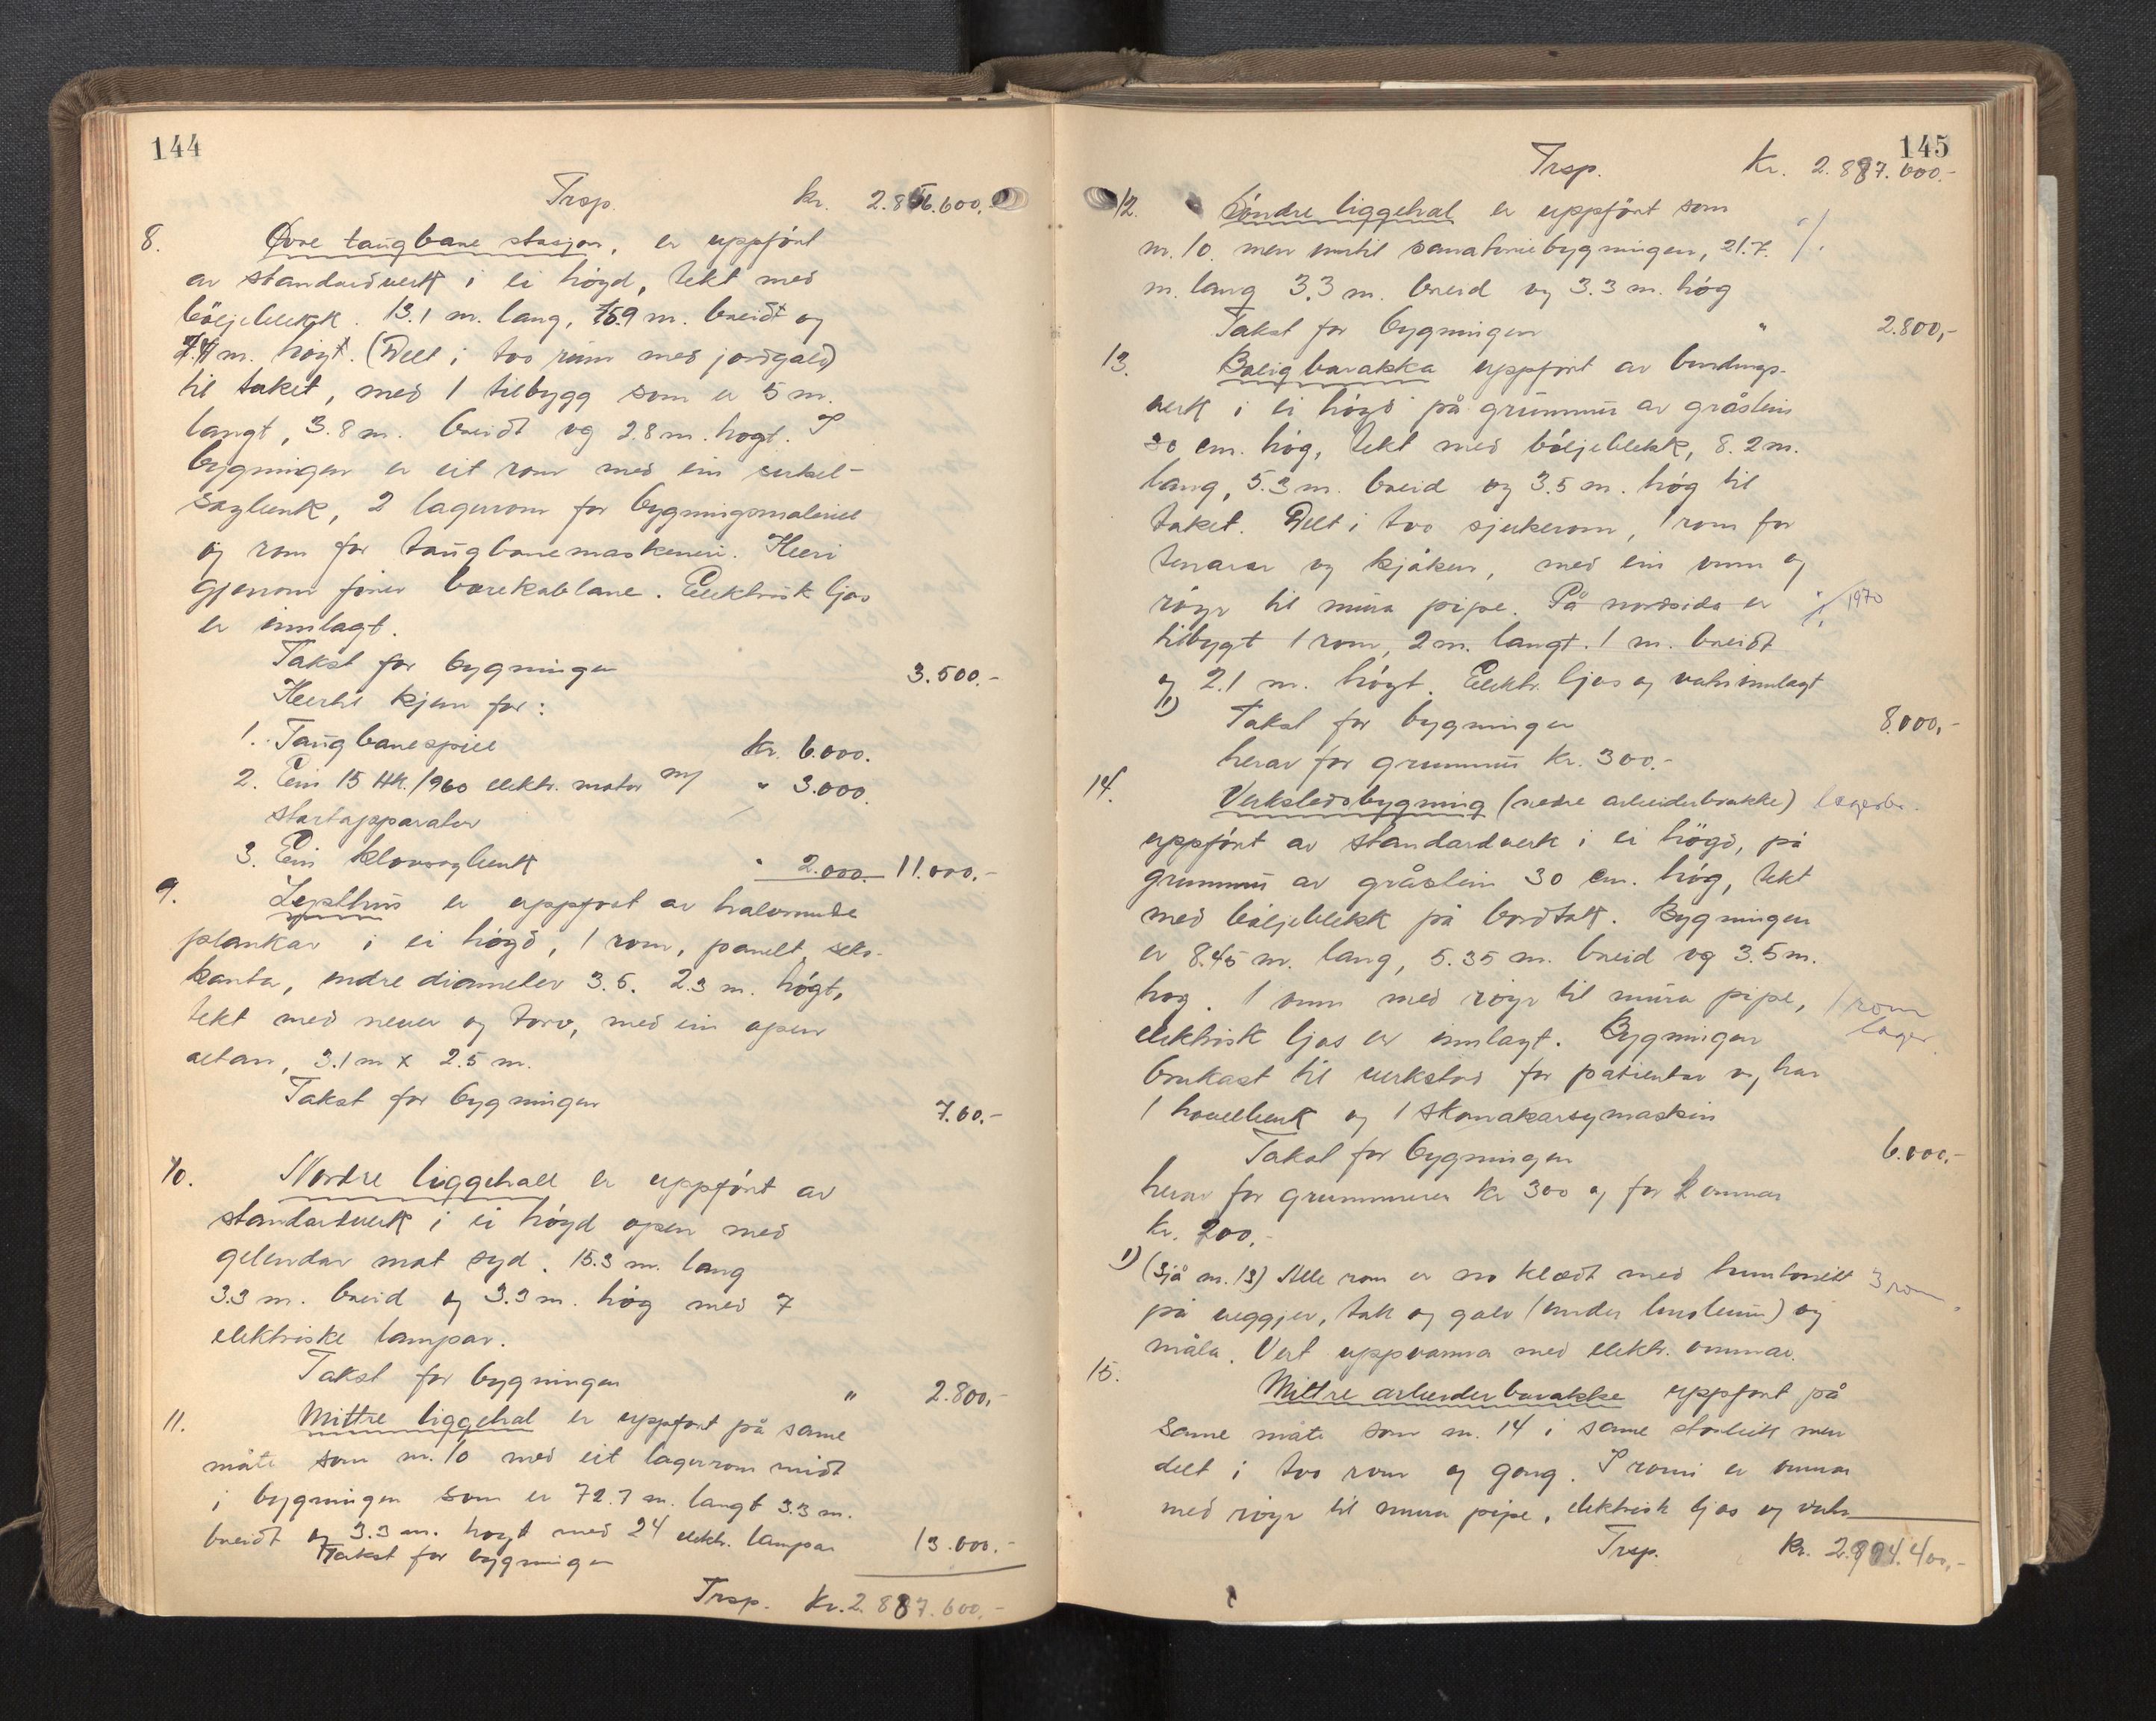 144
Trsp. kr. 2.856.600,-
8. Øvre taugbane stasjon, er uppført
av standardverk i ei høgd, tekt med
böljeblekk. 13.1 m. lang, 5.9 m. breidt og
7.4 m. høgt. (Delt i too rum med jordgolv)
til taket, med 1 tilbygg som er 5 m.
langt, 3.8 m. breidt og 2.8 m. hogt. I
bygningen er eit rom med ein sirkel-
sagbenk, 2 lagerrom for bygningsmateriell
og rom for taugbanemaskineri. Heri
gjenom fører bærekablane. Elektrisk ljos
er innlagt.
Takst for bygningen 3.500.-
Hertil kjem for:
1. Taugbanespill kr. 6.000.
2. Ein 15 Hk./960 elektr. motor m/ " 3.000.
startapparater
3. Ein klovsagbenk " 2.000. 11.000.-
9. Lysthus er uppført av halvrunde
plankar i ei høgd, 1 rom, panelt, seks-
kanta, indre diameter 3.5. 2.3 m. høgt,
tekt med never og torv, med ein open
altan, 3.1 m x 2.5 m.
Takst for bygningen 7.60.-
10. Nordre liggehall er uppført av
standardverk i ei høgd open med
gelendar mot syd. 15.3 m. lang
3.3 m. breid og 3.3 m. høg med 7
elektriske lampar.
Takst for bygningen " 2.800,-
11. Mittre liggehal er uppført på same
måte som nr. 10 med eit lagerrom midt
i bygningen som er 72.7 m. langt 3.3 m.
breidt og 3.3 m. hogt med 24 elektr. lampar 13.000.-
Takst for bygningen
Trsp. Kr. 2.887.600,-
145
Trsp. Kr. 2.887.600.-
12. Söndre liggehal er uppført som
nr. 10 men inntil sanatoriebygningen, 21.7. %.
m. lang 3.3 m. breid og 3.3 m. høg
Takst for bygningen " 2.800,-
13. Boligbarakka uppført av bindings-
verk i ei høgd på grunnmur av gråstein
30 cm. høg, tekt med böljeblekk, 8.2 m.
lang, 5.3 m. breid og 3.5 m. høg til
taket. Delt i too sjukerom, 1 rom for
tenarar og kjøken, med ein omn og
röyr til mura pipe. På nordsida er % 1970
tilbygt 1 rom, 2 m. langt. 1 m. breidt
og 2.1 m. høgt. Elektr. ljos og vatn innlagt
1) Takst for bygningen 8.000,-
herav for grunnmur kr. 300.-
14. Verkstedsbygning (nedre arbeiderbrakke) lagerbr.
uppført av standardverk i ei högd, på
grunnmur av gråstein 30 cm. høg, tekt
med böljeblekk på bordtak. Bygningen
er 8.45 m. lang, 5.35 m. breid og 3.5 m.
høg. 1 omn med röyr til mura pipe, 1 rom
elektrisk ljos er innlagt. Bygningen lager.
brukast til verkstad for patientar og har
1 høvelbenk og 1 skomakarsymaskin
Takst for bygningen 6.000,-
herav for grunnmuren kr 300 og for 2 omnar
kr. 200.-
1) (Sjå nr. 13) Alle rom er no klædt med huntonitt 3 rom.
på veggjer, tak og golv (under linoleum) og
måla. Vert uppvarma med elektr. omnar.
15. Mittre arbeiderbarakke uppført på
same måte som nr. 14 i same storleik men
delt i too rom og gong. I romi er omnar
med röyr til mura pipe, elektrisk ljos og vatn
Trsp. Kr. 2.904.400,-